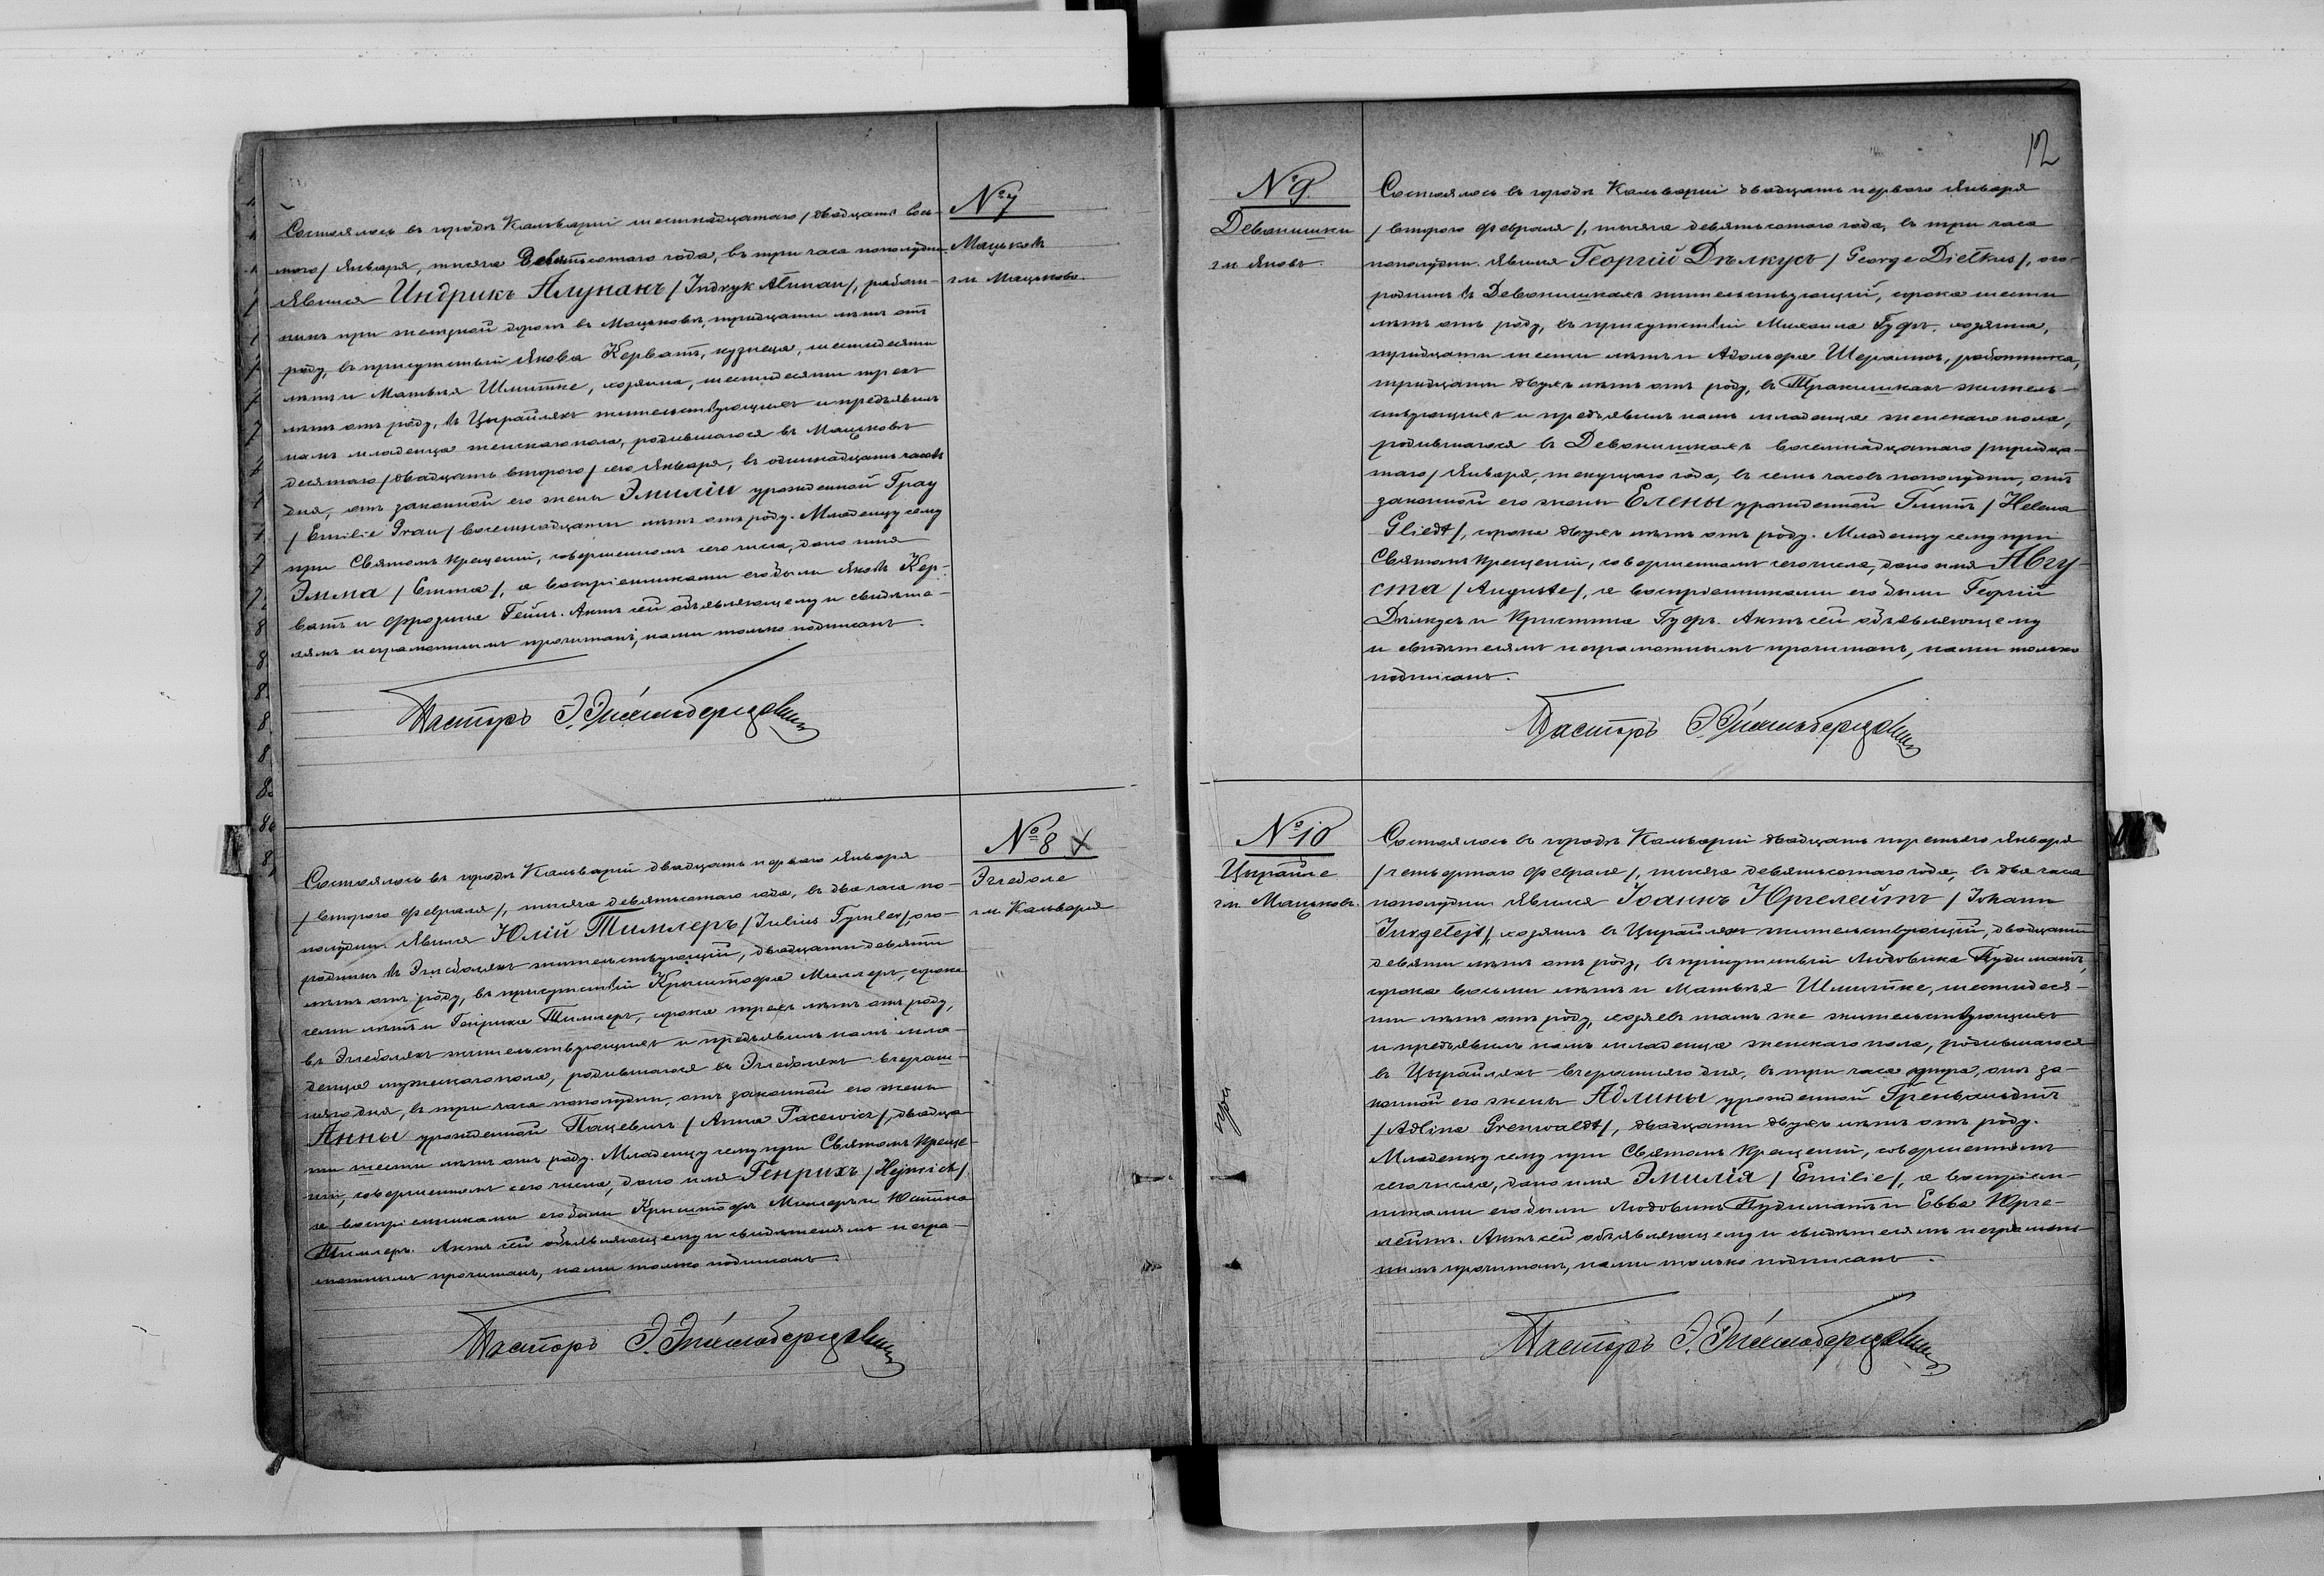 № 7
Мацьковъ
гм. Мацьково
Состоялось въ городѣ Кальваріи шестнадцатаго / двадцать вось-
маго / Января, тысяча девятьсотаго года, въ три часа пополудни.
Явился Индрикъ Алунанъ / Indryk Alunan /, работ-
никъ при желѣзной дорогѣ въ Мацьковѣ, тридцати лѣтъ отъ
роду, въ присутствіи Якова Керватъ, кузнеца, шестидесяти
лѣтъ и Матвѣя Шмитке, хозяина, шестидесяти трехъ
лѣтъ отъ роду, въ Цырайляхъ жительствующихъ и предъявилъ
намъ младенца женскаго пола, родившагося въ Мацьковѣ
десятаго / двадцать второго / сего Января, въ одиннадцать часовъ
дня, отъ законной его жены Эмиліи урожденной Грау
/ Emilie Grau / восемнадцати лѣтъ отъ роду. Младенцу сему
при Святомъ Крещеніи, совершенномъ сего числа, дано имя
Эмма / Emma /, а воспріемниками его были Яковъ Кер-
ватъ и Фрозина Гейнъ. Актъ сей объявляющему и свидѣте-
лямъ неграмотнымъ прочитанъ, нами только подписанъ.
Пасторъ Э.
№ 8 x
Эглеболе
гм. Кальварія
Состоялось въ городѣ Кальваріи двадцать перваго Января
/ второго Февраля /, тысяча девятьсотаго года, въ два часа по-
полудни. Явился Юлій Тимлеръ / Julius Tymler /, ого-
родникъ въ Эглеболяхъ жительствующій, двадцати девяти
лѣтъ отъ роду, въ присутствіи Криштофа Миллеръ, сорока
семи лѣтъ и Генрика Тимлеръ, сорока трехъ лѣтъ отъ роду,
въ Эглеболяхъ жительствующихъ и предъявилъ намъ мла-
денца мужескаго пола, родившагося въ Эглеболяхъ вчераш-
няго дня, въ три часа пополудни, отъ законной его жены
Анны урожденной Пацевичъ / Anna Pacewicz /, двадца-
ти шести лѣтъ отъ роду. Младенцу сему при Святомъ Креще-
ніи, совершенномъ сего числа, дано имя Генрихъ / Hejnrich /
а воспріемниками его были Криштофъ Миллеръ и Юстина
Тимлеръ. Актъ сей объявляющему и свидѣтелямъ негра-
мотнымъ прочитанъ, нами только подписанъ.
Пасторъ Э.
12
№ 9.
Девонишки
гм. Яновъ.
Состоялось въ городѣ Кальваріи двадцать перваго Января
/ второго Февраля /, тысяча девятьсотаго года, въ три часа
пополудни. Явился Георгій Дѣлкусъ / George Dietkus /, ого-
родникъ въ Девонишкахъ жительствующій, сорока шести
лѣтъ отъ роду, въ присутствіи Михаила Гуфъ, хозяина,
тридцати шести лѣтъ и Адольфа, работника,
тридцати двухъ лѣтъ отъ роду, въ Тракишкахъ житель-
ствующихъ и предъявилъ намъ младенца женскаго пола,
родившагося въ Девонишкахъ восемнадцатаго / тридца-
таго / Января, текущаго года, въ семь часовъ пополудни, отъ
законной его жены Елены урожденной Глитъ / Helena
Gliedt /, сорока двухъ лѣтъ отъ роду. Младенцу сему при
Святомъ Крещеніи, совершенномъ сего числа, дано имя Авгу-
ста / Auguste /, а воспріемниками его были Георгій
Дѣлкусъ и Кристина Гуфъ. Актъ сей объявляющему
и свидѣтелямъ неграмотнымъ прочитанъ, нами только
подписанъ.
Пасторъ Э.
№ 10
Цырайле
гм. Мацьковъ.
Состоялось въ городѣ Кальваріи двадцать третьяго Января
/ четвертаго Февраля /, тысяча девятьсотаго года, въ два часа
пополудни. Явился Іоаннъ Юргелейтъ / Johann
Jurgelejt /, хозяинъ въ Цырайляхъ жительствующій, двадцати
девяти лѣтъ отъ роду, въ присутствіи Людовика Пудиматъ,
сорока восьми лѣтъ и Матвѣя Шмитке, шестидеся-
ти лѣтъ отъ роду, хозяевъ тамъ же жительствующихъ
и предъявилъ намъ младенца женскаго пола, родившагося
въ Цырайляхъ вчерашняго дня, въ три часа утра, отъ за-
конной его жены Адлины урожденной Гренвальдтъ
/ Adline Grenwaldt /, двадцати двухъ лѣтъ отъ роду.
Младенцу сему при Святомъ Крещеніи, совершенномъ
сего числа, дано имя Эмилія / Emilie /, а воспріем-
никами его были Людовикъ Пудиматъ и Ева Юрге-
лейтъ. Актъ сей объявляющему и свидѣтелямъ неграмот-
нымъ прочитанъ, нами только подписанъ.
Пасторъ Э.